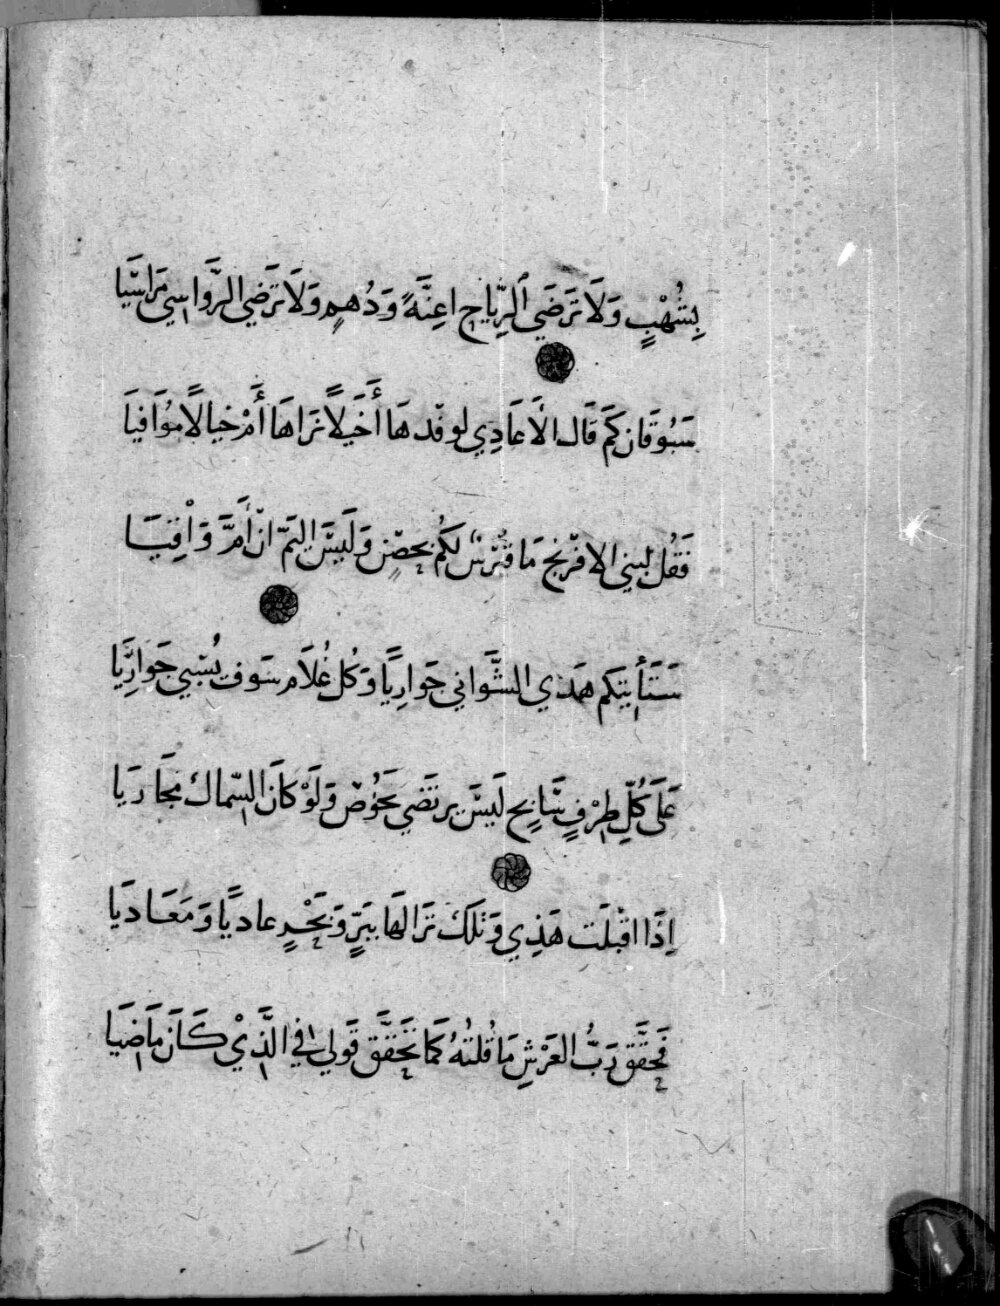 بِشُهْبٍ وَلَا تَرَضَي الرِّيَاحِ اعِنَّةً وَدُهمٍ وَلَا تَرَضي الرَّوَاسِي مَرَاسَيَا
سَبُوقَان كَمَ قَال الَاعَادِي لوفدهَا أَخَيلاً نَرَاهَا أَمْ خيالًا مُوَافيَا
فَقُل لبني الافرْنج مَا قبْرسٌ لكُم بحِصْنٍ وَلَيسَ اليَمّ ان أَمَرَّ وَاقِيَا
سَتَأتيكم هَذي الشَّوَاني جَوارِيًا وَكُل غُلَام سَوف يُسْبي جَوارِيَا
عَلَى كُلِّ طِرْفٍ سَابحٍ لَيسَ يرتَضي بحَوْض وَلَوْ كَانَ السّماك مجَاريَا
اِذَا اقبْلَت هَذِي وَتلكَ تَرَالهَا ببَرٍّ وَبَحْرٍ عاديًا وَمَعَاديَا
فَحَقَّق رَبُّ العَرْشِ مَا قُلتُهُ كَمَا تحَقَّق قَولي في الَّذِيْ كَانَ مَاضيَا